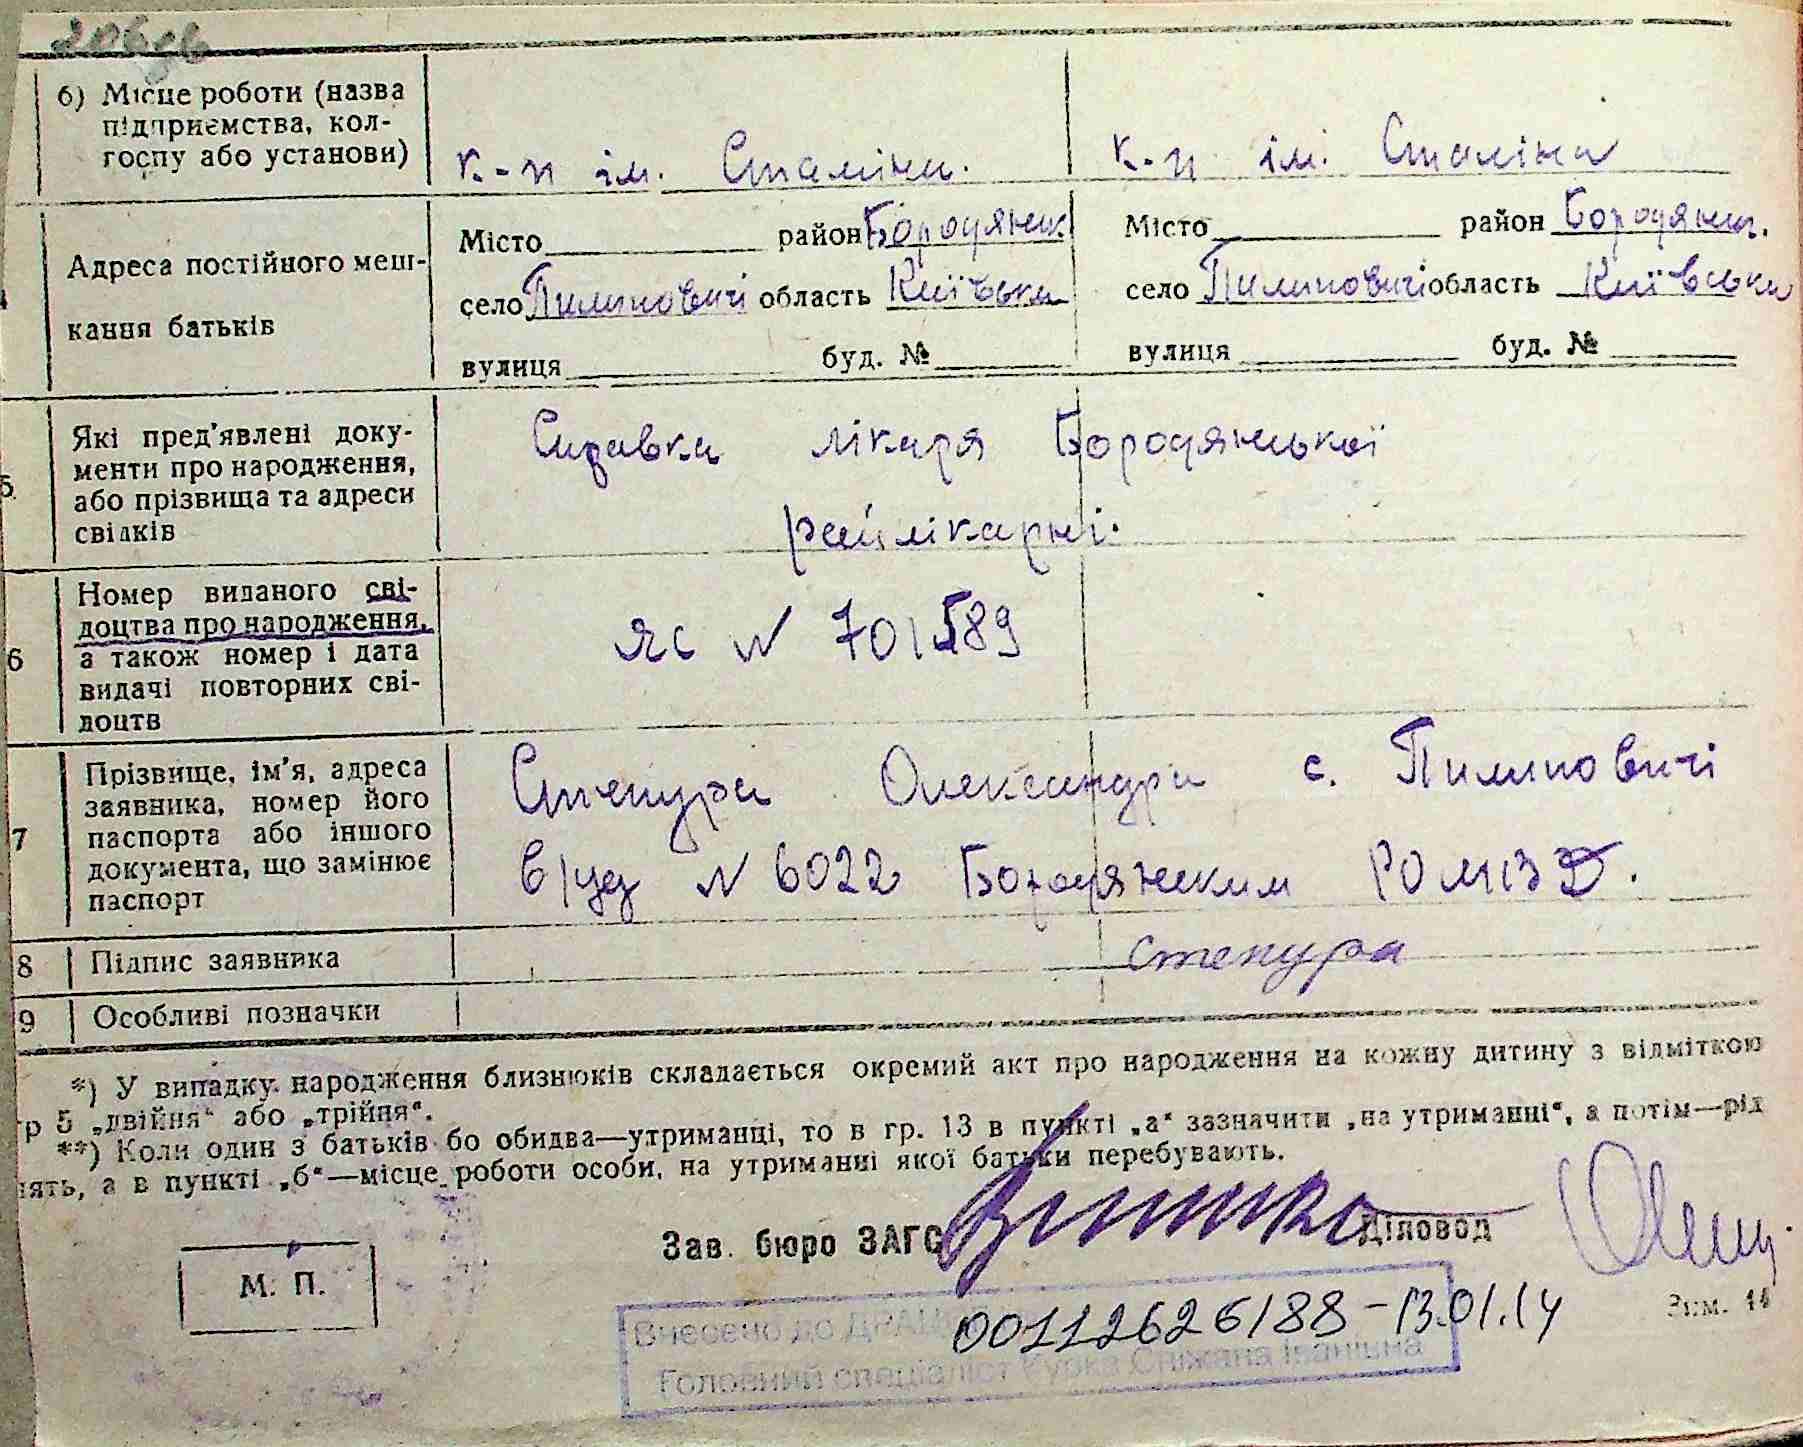 206 зв
б) Місце роботи (назва
підприємства, кол-
госпу або установи)
к-п ім. Сталіна.
к-п ім. Сталіна
Адреса постійного меш-
кання батьків
Місто район Бородянськ
село Пилиповичі область Київська
вулиця буд. №
Місто район Бородянськ.
село Пилиповичі область Київська
вулиця буд. №
5
Які пред'явлені доку-
менти про народження,
або прізвища та адреси
свідків
Справка лікаря Бородянської
райлікарні.
6
Номер виданого сві-
доцтва про народження,
а також номер і дата
видачі повторних сві-
доцтв
ЯС N 701589
7
Прізвище, ім'я, адреса
заявника, номер його
паспорта або іншого
документа, що замінює
паспорт
Степура Олександра с. Пилиповичі
в/уд N 6022 Бородянским РОМВД.
8 Підпис заявника
Степура
9 Особливі позначки
*) У випадку народження близнюків складається окремий акт про народження на кожну дитину з відміткою
гр 5 „двійня“ або „трійня“.
**) Коли один з батьків бо обидва—утриманці, то в гр. 13 в пункті „а“ зазначити „на утриманні“, а потім—рід
нять, а в пункті „б“—місце роботи особи, на утриманні якої батьки перебувають.
Зав. бюро ЗАГС Діловод
М. П.
Внесено до ДРАЦ
00112626188-13.01.14
Головний спеціаліст Курка Сніжана Іванівна
Зим. 14